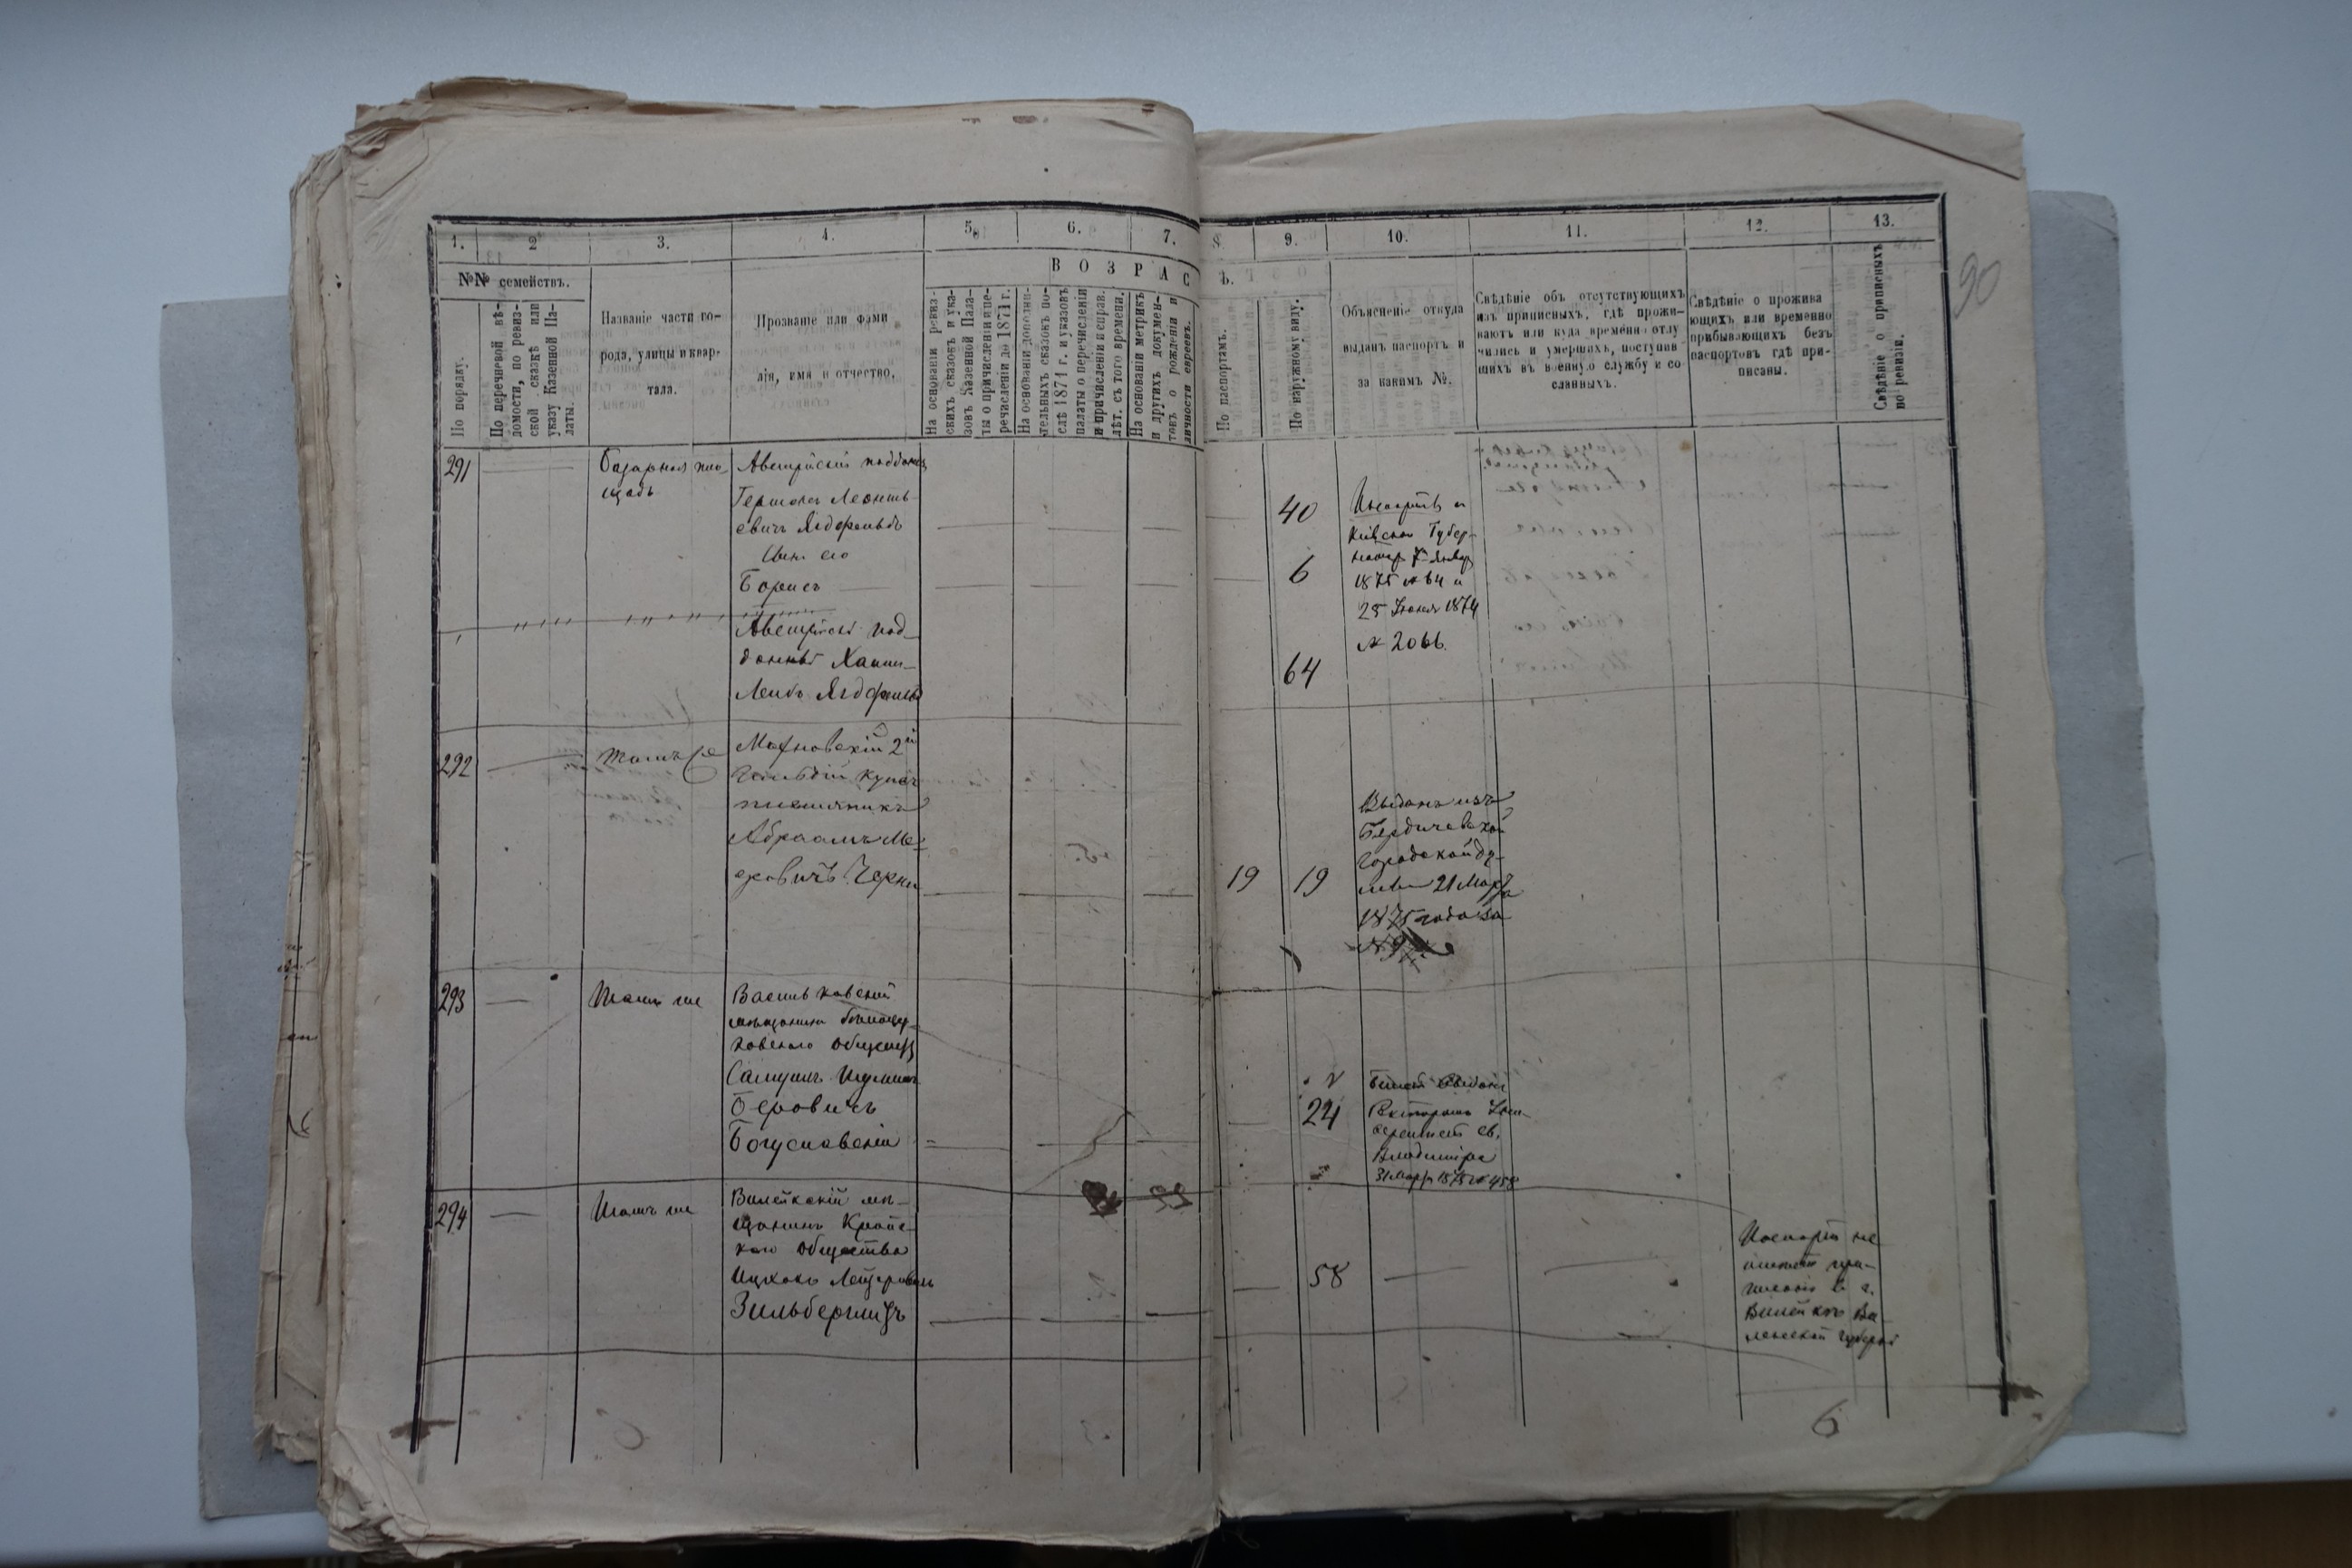 1. 2 3. 4. 5. 6. 7. 8. 9. 10. 11. 12. 13.
90
№№ семействъ.
В О З Р А С
Ѣ.
По порядку.
По перечневой вѣ-
домости, по ревиз-
ской сказкѣ или
указу Казенной Па-
латы.
Названіе части го-
рода, улицы и квар-
тала.
Прозваніе или фами
лія, имя и отчество.
На основаніи ревиз-
скихъ сказокъ и ука-
зовъ Казенной Пала-
ты о причисленіи и пе-
речисленіи до 1871 г.
На основаніи дополни-
тельныхъ сказокъ по-
слѣ 1871 г. и указовъ
палаты о перечисленіи
и причисленіи и справ.
лѣт. съ того времени.
На основаніи метрикъ
и другихъ докумен-
товъ о рожденіи и
личности евреевъ.
По паспортамъ.
По наружному виду.
Объясненіе откуда
выданъ паспортъ и
за какимъ №.
Свѣдѣніе объ отсутствующихъ
изъ приписныхъ, гдѣ прожи-
ваютъ или куда временно отлу
чились и умершихъ, поступив
шихъ въ военную службу и со
сланныхъ.
Свѣдѣніе о прожива
ющихъ или временно
прибывающихъ безъ
паспортовъ гдѣ при-
писаны.
Свѣдѣніе о приписныхъ
по ревизіи.
291
Базарная пло-
щадь
Австрійскій подданый
Леонть-
евичъ
Сынъ его
Борисъ
Австрійскі под-
данный
Лейбъ
40
6
64
Кіевской Губер-
1875 № 64 и
25 Іюня 1874
№ 2066.
292
Тамъ же
Махновскій 2й
Гильдіи купецъ
племянникъ
Абраамъ Ме-
еровичъ Черн
19 19
Выданъ изъ
Бердичевской
Городской Ду-
мы 21 Марта
1875 года за
293
Тамъ же
Васильковскій
мѣщанинъ бѣлоцер-
ковскаго Общества
Самуилъ
Беровичъ
Богуславскій
24
Билетъ выданъ
Ректоромъ Уни-
верситет св.
Владиміра
31 Марта 1875 № 458
294
Тамъ же
Вилейскій мѣ-
щанинъ Крайс-
каго Общества
Ицхокъ Лейзеровичъ
Зильберминцъ
58
Паспорта не
имѣетъ при-
писанъ въ г.
Вилейкѣ Ви-
ленской губерніи
6